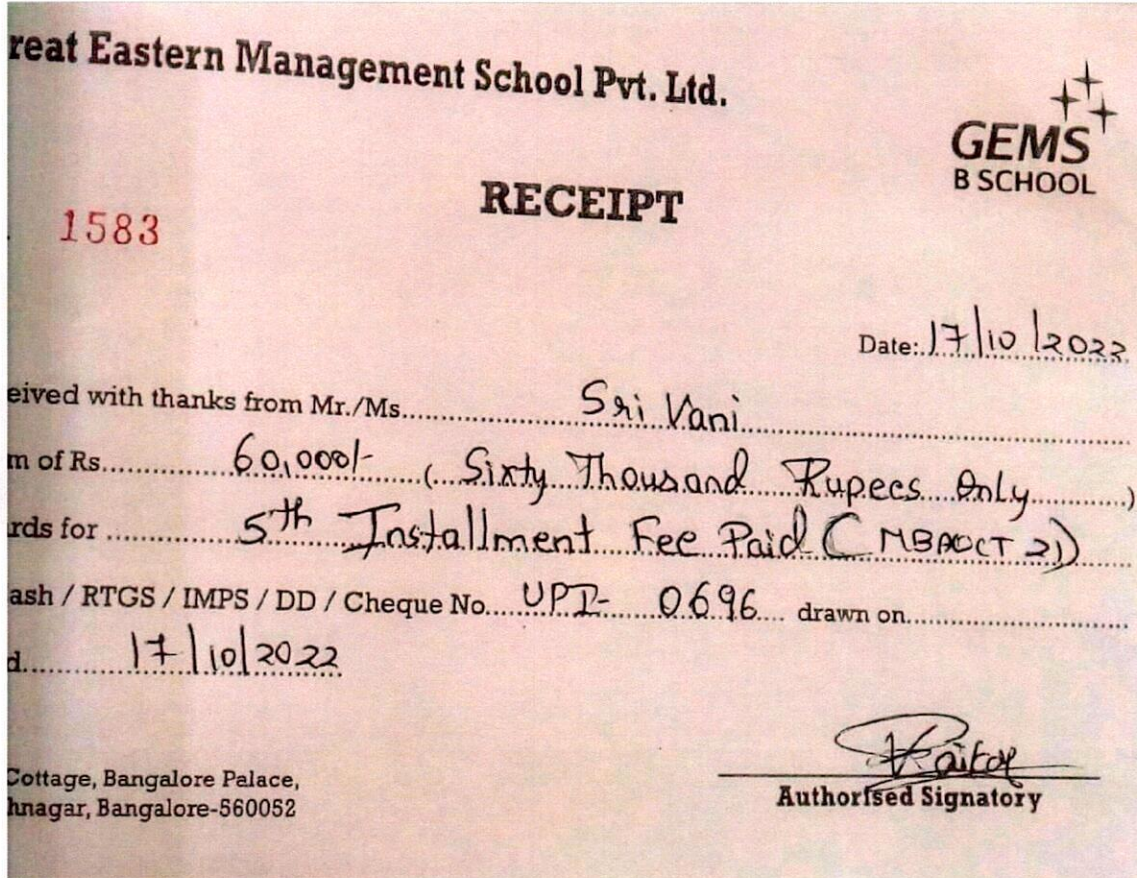 reat Eastern Management School Pvt. Ltd.
GEMS
B SCHOOL
RECEIPT
1583
Date: 17/10/2022
eived with thanks from Mr./Ms. Sri Vani
m of Rs. 60,000/- (Sixty Thousand Rupees Only)
rds for 5th Installment Fee Paid (MBAOCT 21)
ash / RTGS / IMPS / DD / Cheque No. UPI- 0696 drawn on
d. 17/10/2022
Cottage, Bangalore Palace,
hnagar, Bangalore-560052
Authorised Signatory